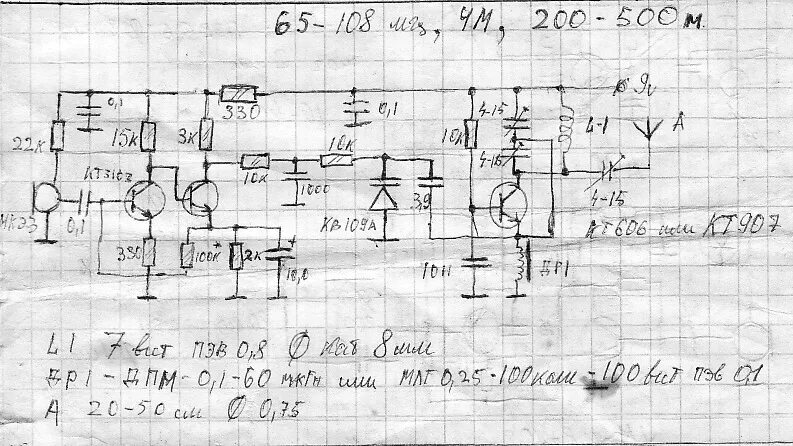 65-108 мгц, ЧМ, 200-500м.
9v
0,1
330
0,1
4-15
22к
15к
3к
10к
10к
4-15
L-1
А
КТ3102
10к
1000
3,9
4-15
МКЭ3
0,1
КВ109А
КТ606 или КТ907
330
100к*
2к
10,0
+
10Н
ДР1
L1 7 вит ПЭВ 0,8 Ø кат 8мм
ДР1-ДПМ-0,1-60 мкГн или МЛТ 0,25-100ком-100 вит ПЭВ 0,1
А 20-50 см Ø 0,75